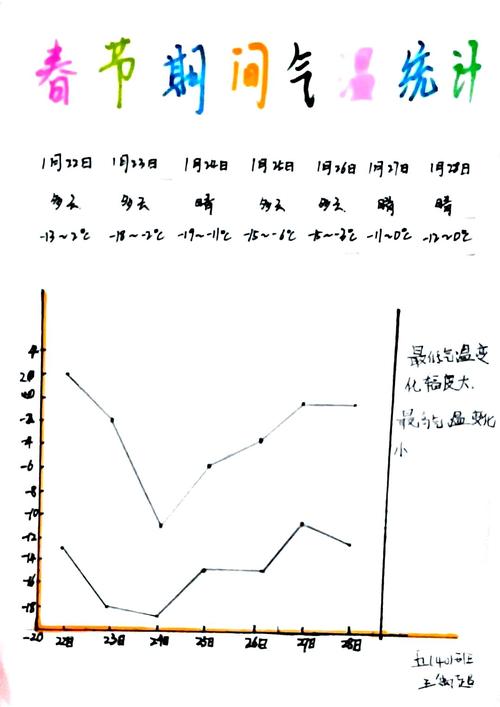 春节期间气温统计
1月22日 1月23日 1月24日 1月25日 1月26日 1月27日 1月28日
多云 多云 晴 多云 多云 晴 晴
-13~2℃ -18~-2℃ -19~-11℃ -15~-6℃ -15~-3℃ -11~0℃ -12~0℃
4
2
0
-2
-4
-6
-8
-10
-12
-14
-16
-18
-20
22日 23日 24日 25日 26日 27日 28日
最低气温变
化幅度大.
最高气温变化
小
五(4)班